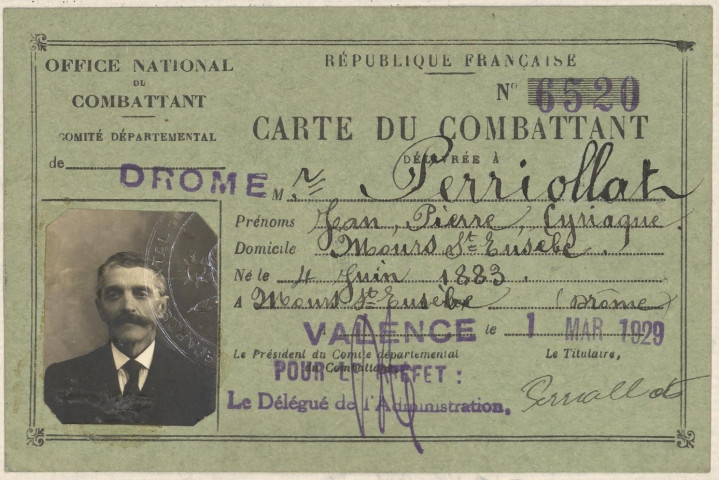 OFFICE NATIONAL
DU
COMBATTANT
COMITÉ DÉPARTEMENTAL
de DROME
RÉPUBLIQUE FRANÇAISE
N° 6520
CARTE DU COMBATTANT
DÉLIVRÉE À
M r Perriollat
Prénoms Jean, Pierre, Cyriaque.
Domicile Mours St Eusèbe.
Né le 4 Juin 1883
A Mours St Eusèbe (Drôme)
VALENCE le 1 MAR 1929
Le Président du Comité départemental
du Combattant
Le Titulaire,
POUR LE PREFET :
Le Délégué de l'Administration.
Perriollat